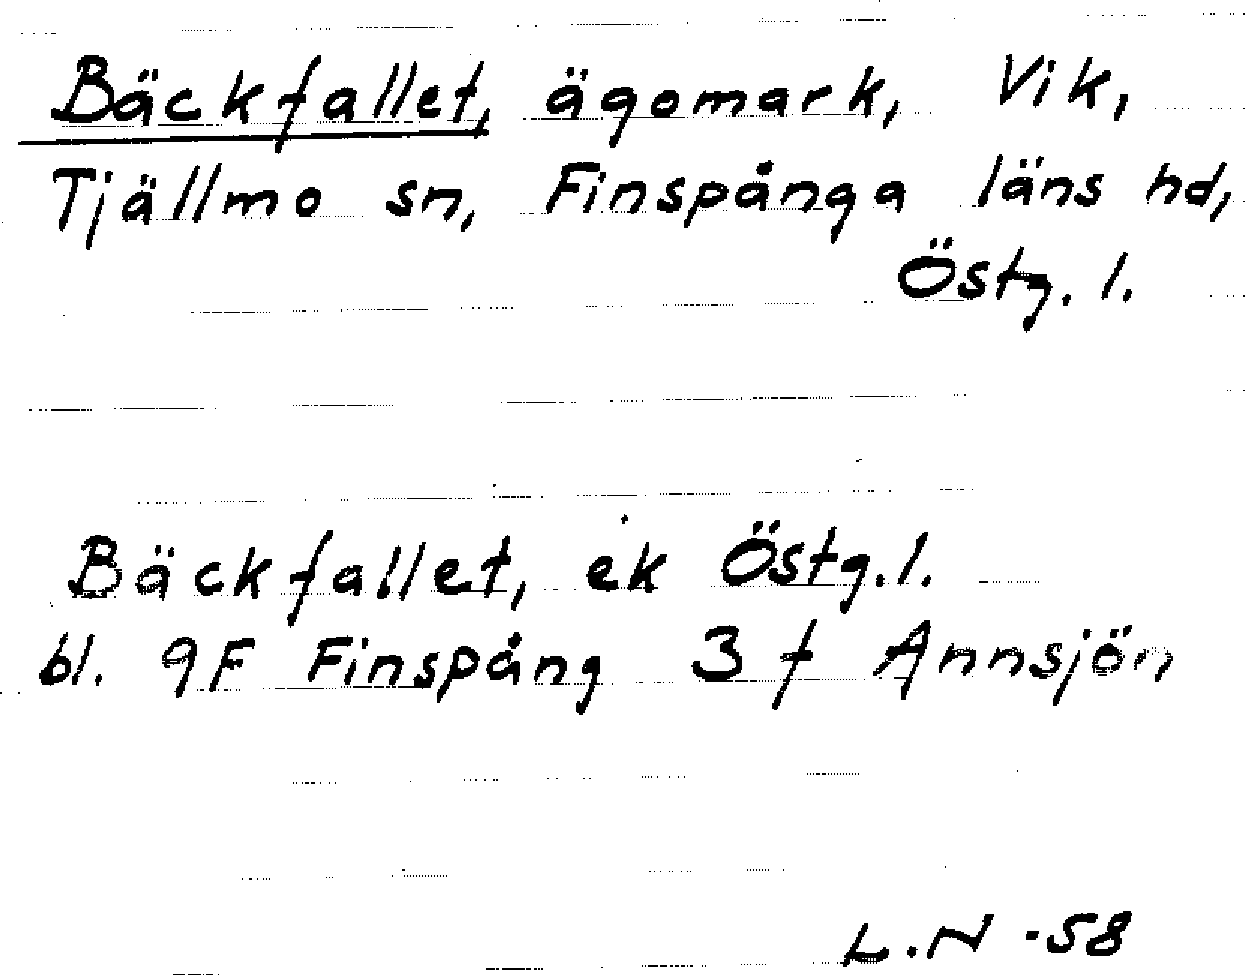 Bäckfallet, ägomark, Vik,
Tjällmo sn, Finspånga läns hd,
Östg. l.
Bäckfallet, ek Östg. l.
bl. 9F Finspång 3 f Annsjön
L.N -58